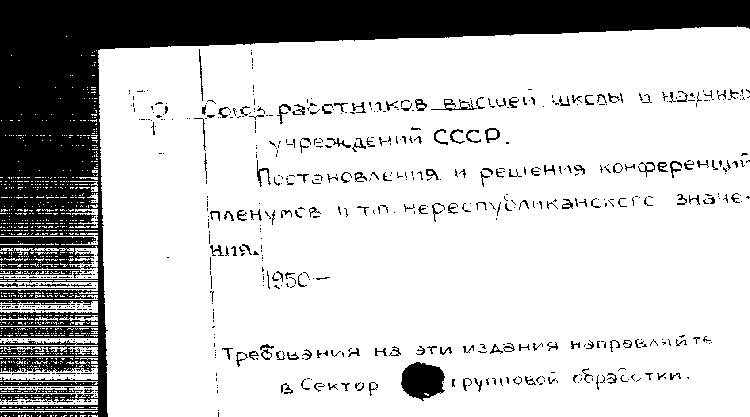 Гр Союз работников высшей школы и научных
учреждений СССР.
Постановления и решения конференций
пленумов и т.п. нереспубликанского значе-
ния.
1950—
Требования на эти издания направляйте
в Сектор групповой обработки.